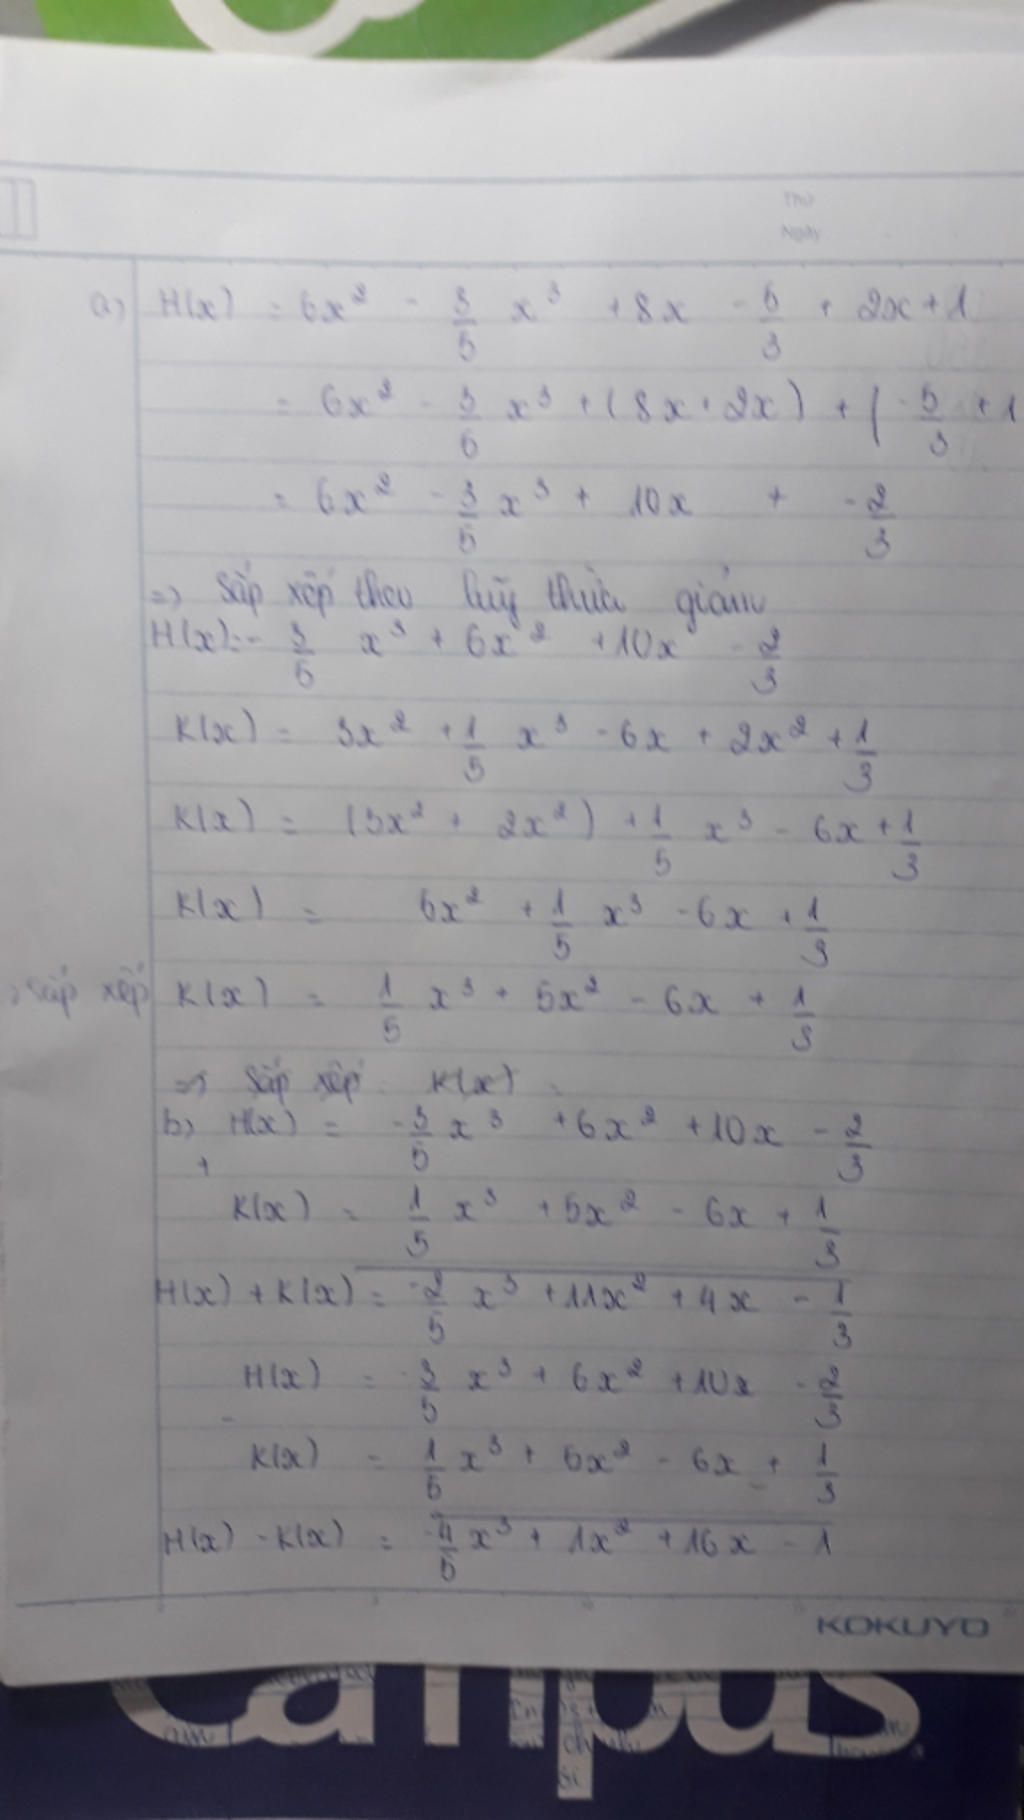 Thứ
Ngày
a) H(x) = 6x² - 3/5 x³ + 8x - 5/3 + 2x + 1
= 6x² - 3/5 x³ + (8x + 2x) + ( -5/3 + 1
= 6x² - 3/5 x³ + 10x + -2/3
=> Sắp xếp theo luỹ thừa giảm
H(x) = - 3/5 x³ + 6x² + 10x - 2/3
K(x) = 3x² + 1/5 x³ - 6x + 2x² + 1/3
K(x) = (3x² + 2x²) + 1/5 x³ - 6x + 1/3
K(x) = 5x² + 1/5 x³ - 6x + 1/3
=> sắp xếp K(x) = 1/5 x³ + 5x² - 6x + 1/3
=> Sắp xếp K(x) =
b) H(x) = -3/5 x³ + 6x² + 10x - 2/3
+
K(x) = 1/5 x³ + 5x² - 6x + 1/3
H(x) + K(x) = -2/5 x³ + 11x² + 4x - 1/3
H(x) = -3/5 x³ + 6x² + 10x - 2/3
-
K(x) = 1/5 x³ + 5x² - 6x + 1/3
H(x) - K(x) = -4/5 x³ + 1x² + 16x - 1
KOKUYO
Campus